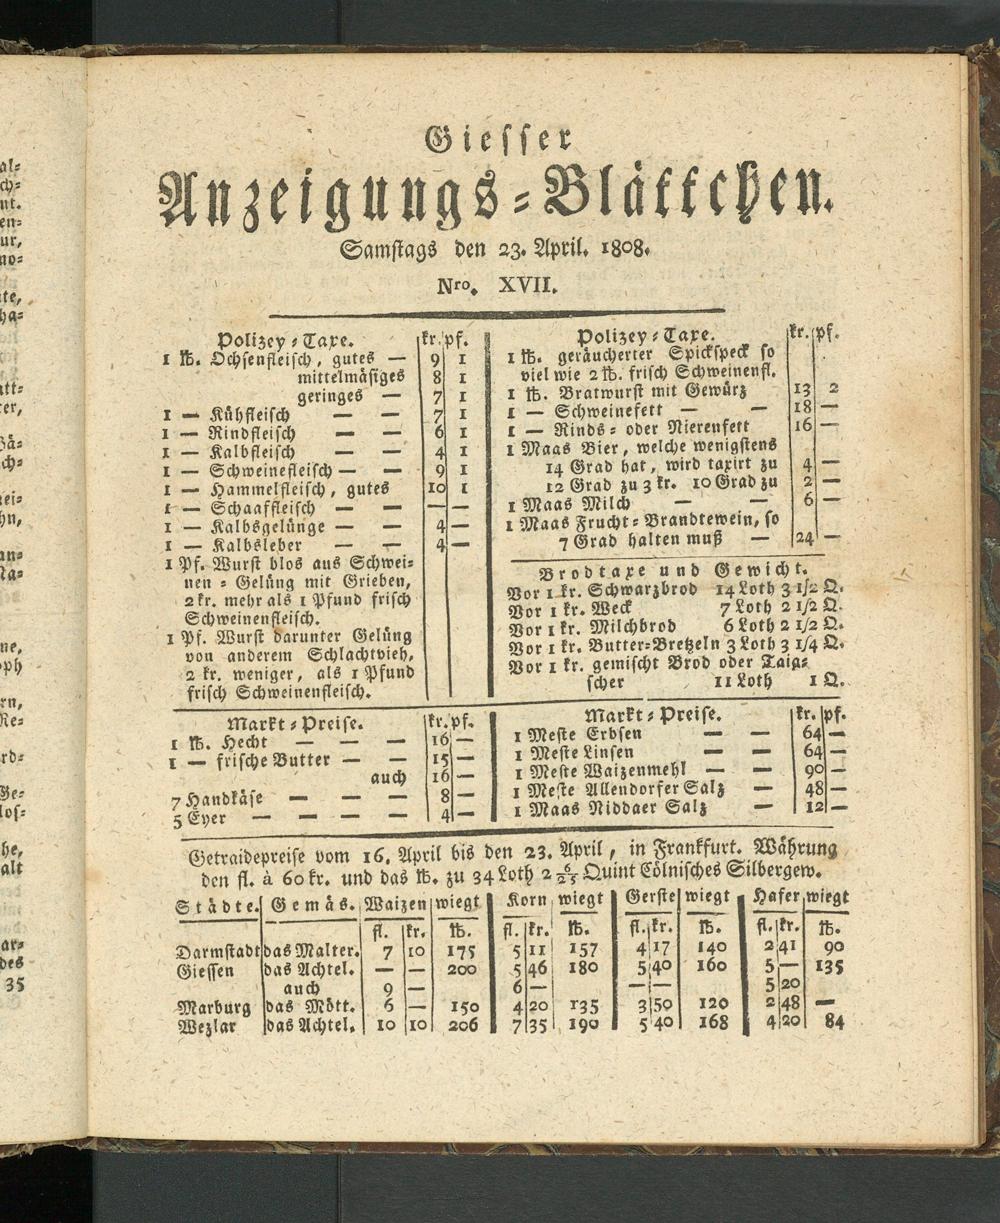 Giesser
Anzeigungs-Blättchen.
Samstags den 23. April. 1808.
Nro. XVII.
Polizey-Taxe. kr. pf.
1 ℔. Ochsenfleisch, gutes — 9 1
mittelmäsiges 8 1
geringes — 7 1
1 — Kühfleisch — — 7 1
1 — Rindfleisch — — 6 1
1 — Kalbfleisch — — 4 1
1 — Schweinefleisch — — 9 1
1 — Hammelfleisch, gutes 10 1
1 — Schaaffleisch — — — —
1 — Kalbsgelünge — — 4 —
1 — Kalbsleber — — 4 —
1 Pf. Wurst blos aus Schwei-
nen-Gelüng mit Grieben,
2 kr. mehr als 1 Pfund frisch
Schweinenfleisch.
1 Pf. Wurst darunter Gelüng
von anderem Schlachtvieh,
2 kr. weniger, als 1 Pfund
frisch Schweinenfleisch.
Polizey-Taxe. kr. pf.
1 ℔. geräucherter Spickspeck so
viel wie 2 ℔. frisch Schweinenfl.
1 ℔. Bratwurst mit Gewürz 13 2
1 — Schweinefett — — 18 —
1 — Rinds- oder Nierenfett 16 —
1 Maas Bier, welche wenigstens
14 Grad hat, wird taxirt zu 4 —
12 Grad zu 3 kr. 10 Grad zu 2 —
1 Maas Milch — — 6 —
1 Maas Frucht-Brandtewein, so
7 Grad halten muß — 24 —
Brodtaxe und Gewicht.
Vor 1 kr. Schwarzbrod 14 Loth 3 1/2 Q.
Vor 1 kr. Weck 7 Loth 2 1/2 Q.
Vor 1 kr. Milchbrod 6 Loth 2 1/2 Q.
Vor 1 kr. Butter-Bretzeln 3 Loth 3 1/4 Q.
Vor 1 kr. gemischt Brod oder Taig-
scher 11 Loth 1 Q.
Markt-Preise. kr. pf.
1 ℔. Hecht — — — 16 —
1 — frische Butter — — 15 —
auch 16 —
7 Handkäse — — — 8 —
5 Eyer — — — — 4 —
Markt-Preise. kr. pf.
1 Meste Erbsen — — 64 —
1 Meste Linsen — — 64 —
1 Meste Waizenmehl — — 90 —
1 Meste Allendorfer Salz — 48 —
1 Maas Niddaer Salz — 12 —
Getraidepreise vom 16. April bis den 23. April, in Frankfurt. Währung
den fl. à 60 kr. und das ℔. zu 34 Loth 2 6/25 Quint Cölnisches Silbergew.
Städte. Gemäs. Waizen wiegt Korn wiegt Gerste wiegt Hafer wiegt
fl. kr. ℔. fl. kr. ℔. fl. kr. ℔. fl. kr. ℔.
Darmstadt das Malter. 7 10 175 5 11 157 4 17 140 2 41 90
Giessen das Achtel. — — 200 5 46 180 5 40 160 5 — 135
auch 9 — 6 — — — 5 20
Marburg das Mött. 6 — 150 4 20 135 3 50 120 2 48 —
Wezlar das Achtel. 10 10 206 7 35 190 5 40 168 4 20 84
al-
ch-
nt.
en-
ur,
no-
ha-
ohn,
ne,
rn,
he,
alt
des
35